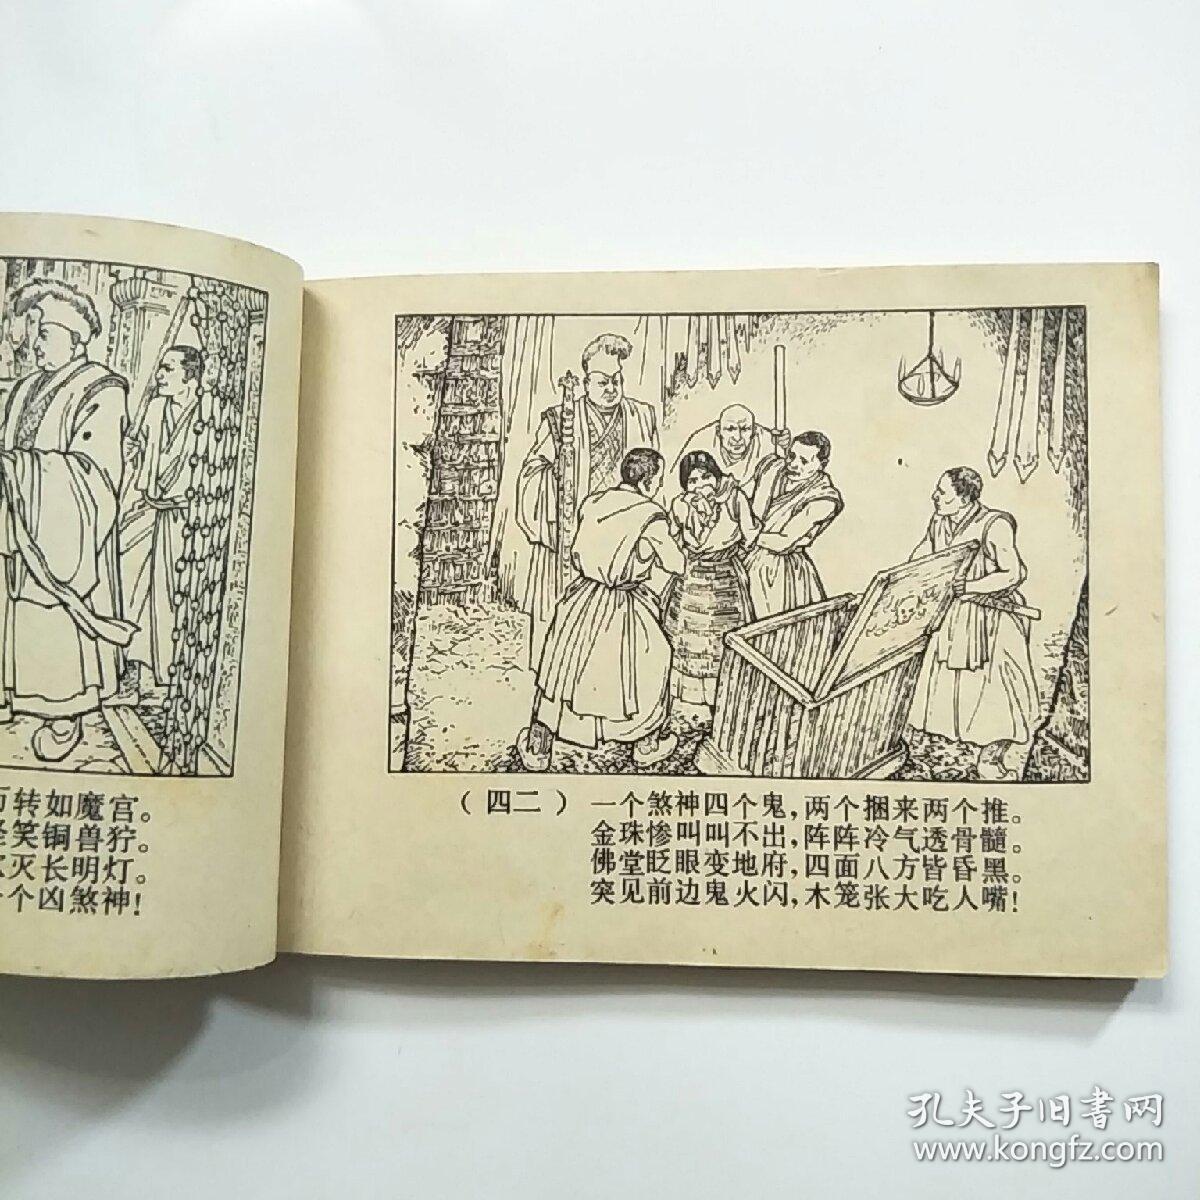 转如魔宫。
笑铜兽狞。
灭长明灯。
个凶煞神!
（四二）一个煞神四个鬼,两个捆来两个推。
金珠惨叫叫不出,阵阵冷气透骨髓。
佛堂眨眼变地府,四面八方皆昏黑。
突见前边鬼火闪,木笼张大吃人嘴!
孔夫子旧书网
www.kongfz.com